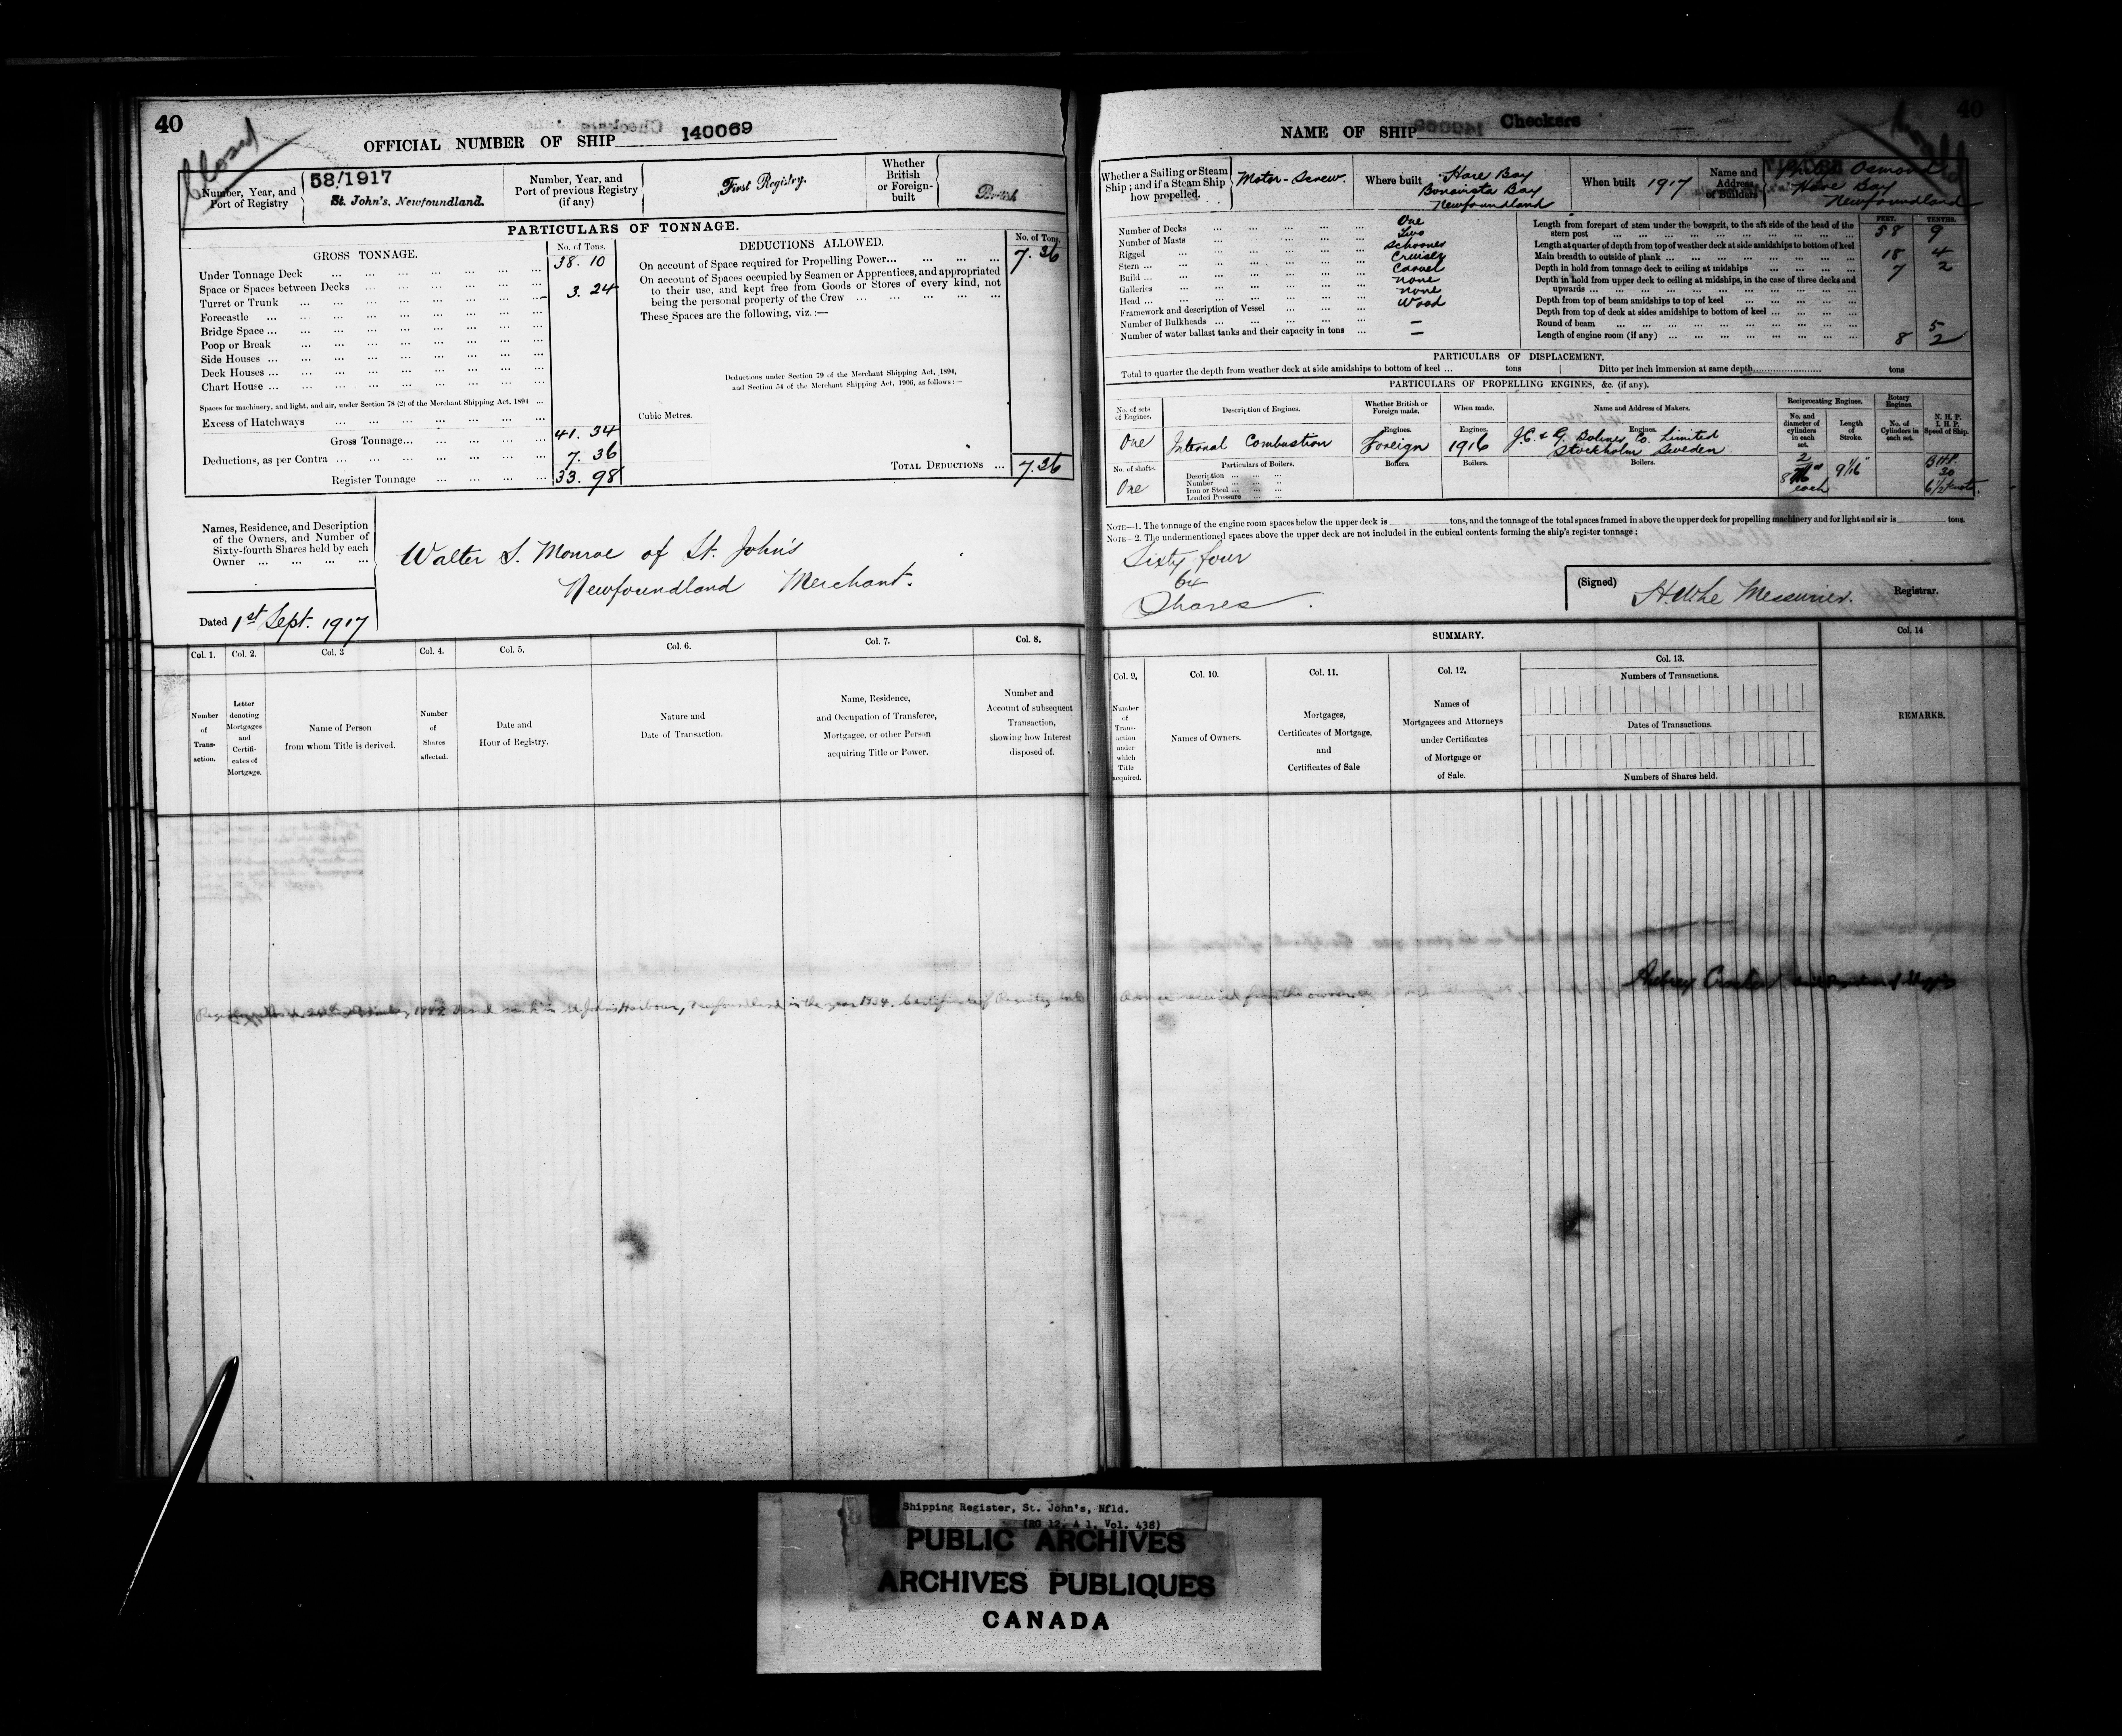 40
Closed
OFFICIAL NUMBER OF SHIP 140069
Number, Year, and Port of Registry
58/1917
St. John's, Newfoundland.
Number, Year, and Port of previous Registry (if any)
First Registry.
Whether British or Foreign-built
British
PARTICULARS OF TONNAGE.
GROSS TONNAGE.
No. of Tons.
Under Tonnage Deck ... 38. 10
Space or Spaces between Decks
Turret or Trunk ... 3. 24
Forecastle ...
Bridge Space ...
Poop or Break
Side Houses ...
Deck Houses ...
Chart House ...
Spaces for machinery, and light, and air, under Section 78 (2) of the Merchant Shipping Act, 1894 ...
Excess of Hatchways ...
Gross Tonnage... 41. 34
Deductions, as per Contra ... 7. 36
Register Tonnage ... 33. 98
DEDUCTIONS ALLOWED.
No. of Tons.
On account of Space required for Propelling Power... 7. 36
On account of Spaces occupied by Seamen or Apprentices, and appropriated
to their use, and kept free from Goods or Stores of every kind, not
being the personal property of the Crew ...
These Spaces are the following, viz. :—
Deductions under Section 79 of the Merchant Shipping Act, 1894,
and Section 54 of the Merchant Shipping Act, 1906, as follows :—
Cubic Metres.
TOTAL DEDUCTIONS ... 7.36
Names, Residence, and Description
of the Owners, and Number of
Sixty-fourth Shares held by each
Owner ...
Walter S. Monroe of St. John's
Newfoundland Merchant.
Dated 1st Sept. 1917
Col. 1.
Number of Transaction.
Col. 2.
Letter denoting Mortgages and Certificates of Mortgage.
Col. 3
Name of Person from whom Title is derived.
Col. 4.
Number of Shares affected.
Col. 5.
Date and Hour of Registry.
Col. 6.
Nature and Date of Transaction.
Col. 7.
Name, Residence,
and Occupation of Transferee,
Mortgagee, or other Person
acquiring Title or Power.
Col. 8.
Number and
Account of subsequent
Transaction,
showing how Interest
disposed of.
in St John's Harbour, Newfoundland in the year 1934. Certificate of Registry
40
NAME OF SHIP Checkers
Whether a Sailing or Steam Ship; and if a Steam Ship how propelled.
Motor-Screw.
Where built
Hare Bay
Bonavista Bay
Newfoundland
When built 1917
Name and Address of Builders
Osmond
Hare Bay
Newfoundland
Number of Decks ... One
Number of Masts ... Two
Rigged ... Schooner
Stern ... Cruiser
Build ... Carvel
Galleries none
Head ... none
Framework and description of Vessel ... Wood
Number of Bulkheads ... —
Number of water ballast tanks and their capacity in tons ... —
FEET. TENTHS.
Length from forepart of stem under the bowsprit, to the aft side of the head of the
stern post ... 58 9
Length at quarter of depth from top of weather deck at side amidships to bottom of keel
Main breadth to outside of plank ... 18 4
Depth in hold from tonnage deck to ceiling at midships ... 7 2
Depth in hold from upper deck to ceiling at midships, in the case of three decks and
upwards ...
Depth from top of beam amidships to top of keel ...
Depth from top of deck at sides amidships to bottom of keel ...
Round of beam ... 5
Length of engine room (if any) ... 8 2
PARTICULARS OF DISPLACEMENT.
Total to quarter the depth from weather deck at side amidships to bottom of keel ... tons
Ditto per inch immersion at same depth tons
PARTICULARS OF PROPELLING ENGINES, &c. (if any).
No. of sets of Engines.
Description of Engines.
Whether British or Foreign made.
When made.
Name and Address of Makers.
Reciprocating Engines.
No. and diameter of cylinders in each set.
Length of Stroke.
Rotary Engines
No. of Cylinders in each set.
N. H. P.
I. H. P.
Speed of Ship.
One
Internal Combustion
Engines.
Foreign
Engines.
1916
Engines.
J.C. & G. Bolines Co. Limited
Stockholm Sweden
No. of shafts.
One
Particulars of Boilers.
Description ...
Number ...
Iron or Steel ...
Loaded Pressure ...
Boilers.
Boilers.
Boilers.
2
each
9 1/16"
B.H.P.
30
6 1/2 knots.
NOTE—1. The tonnage of the engine room spaces below the upper deck is tons, and the tonnage of the total spaces framed in above the upper deck for propelling machinery and for light and air is tons.
NOTE—2. The undermentioned spaces above the upper deck are not included in the cubical contents forming the ship's register tonnage :
Sixty four
64
Shares.
(Signed) H.W. Le Messurier. Registrar.
SUMMARY.
Col. 9.
Number of Transaction under which Title acquired.
Col. 10.
Names of Owners.
Col. 11.
Mortgages,
Certificates of Mortgage,
and
Certificates of Sale
Col. 12.
Names of
Mortgagees and Attorneys
under Certificates
of Mortgage or
of Sale.
Col. 13.
Numbers of Transactions.
Dates of Transactions.
Numbers of Shares held.
Col. 14
REMARKS.
received from the owner
Shipping Register, St. John's, Nfld.
(RG 12, A 1, Vol. 438)
PUBLIC ARCHIVES
ARCHIVES PUBLIQUES
CANADA